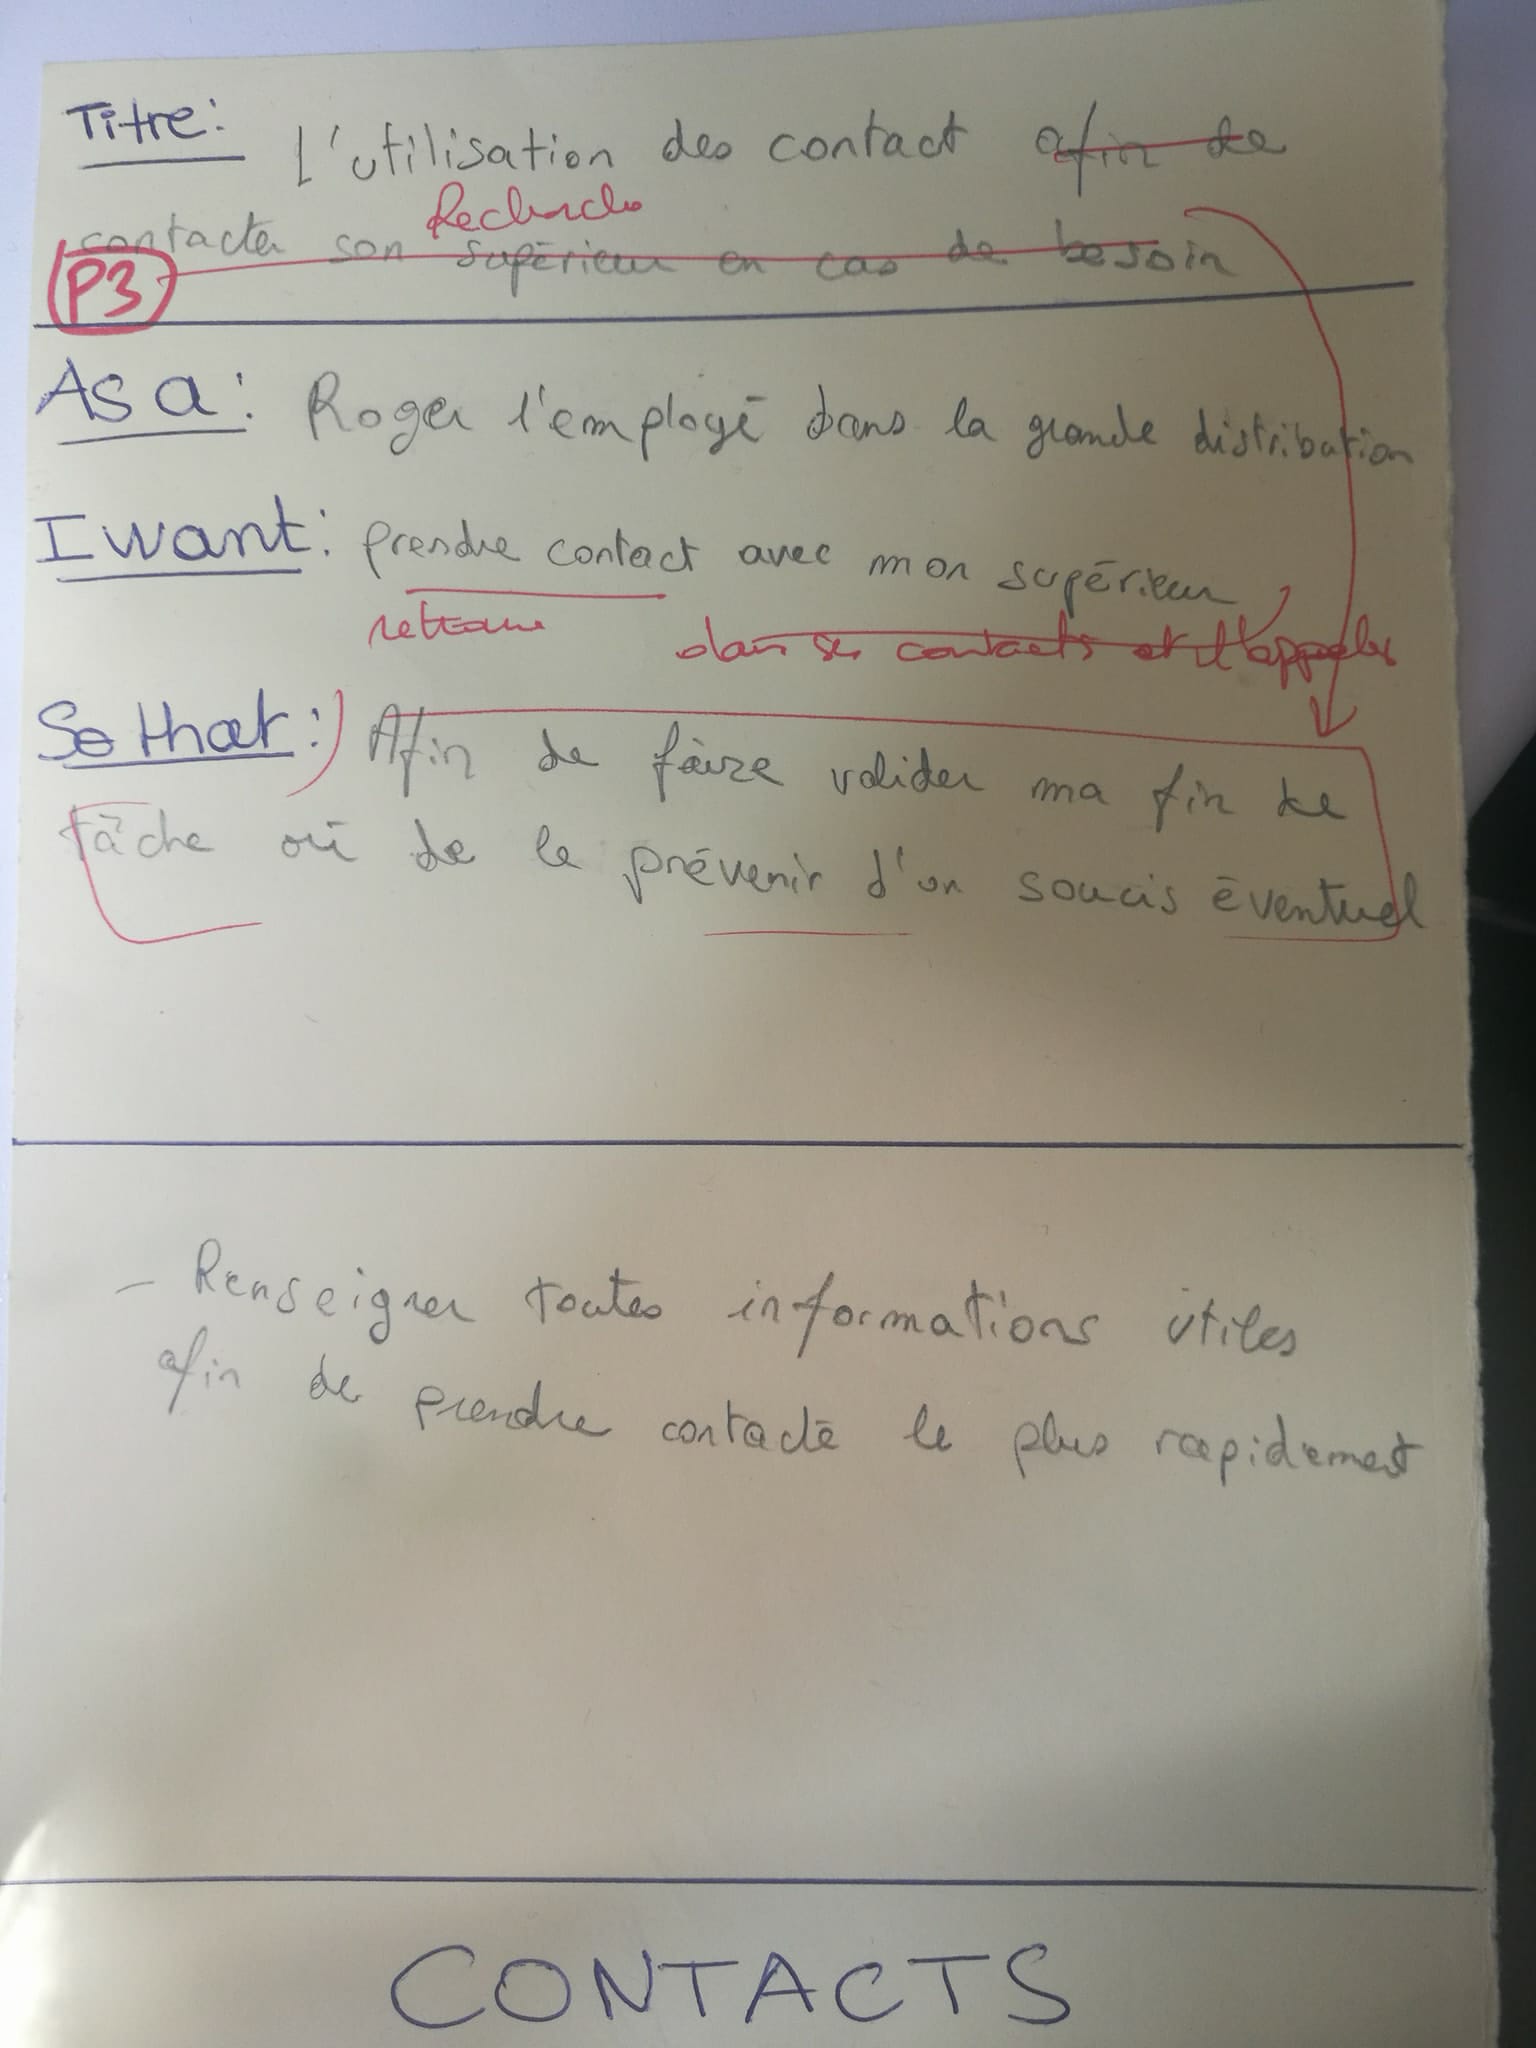 Titre: L'utilisation des contact afin de
Recherche
contacter son supérieur en cas de besoin
P3
As a: Roger l'employé dans la grande distribution
I want: prendre contact avec mon supérieur,
retrouver dans ses contacts et l'appeler
So that: Afin de faire valider ma fin de
tâche où de le prévenir d'un soucis éventuel
- Renseigner toutes informations utiles
afin de prendre contacte le plus rapidement
CONTACTS